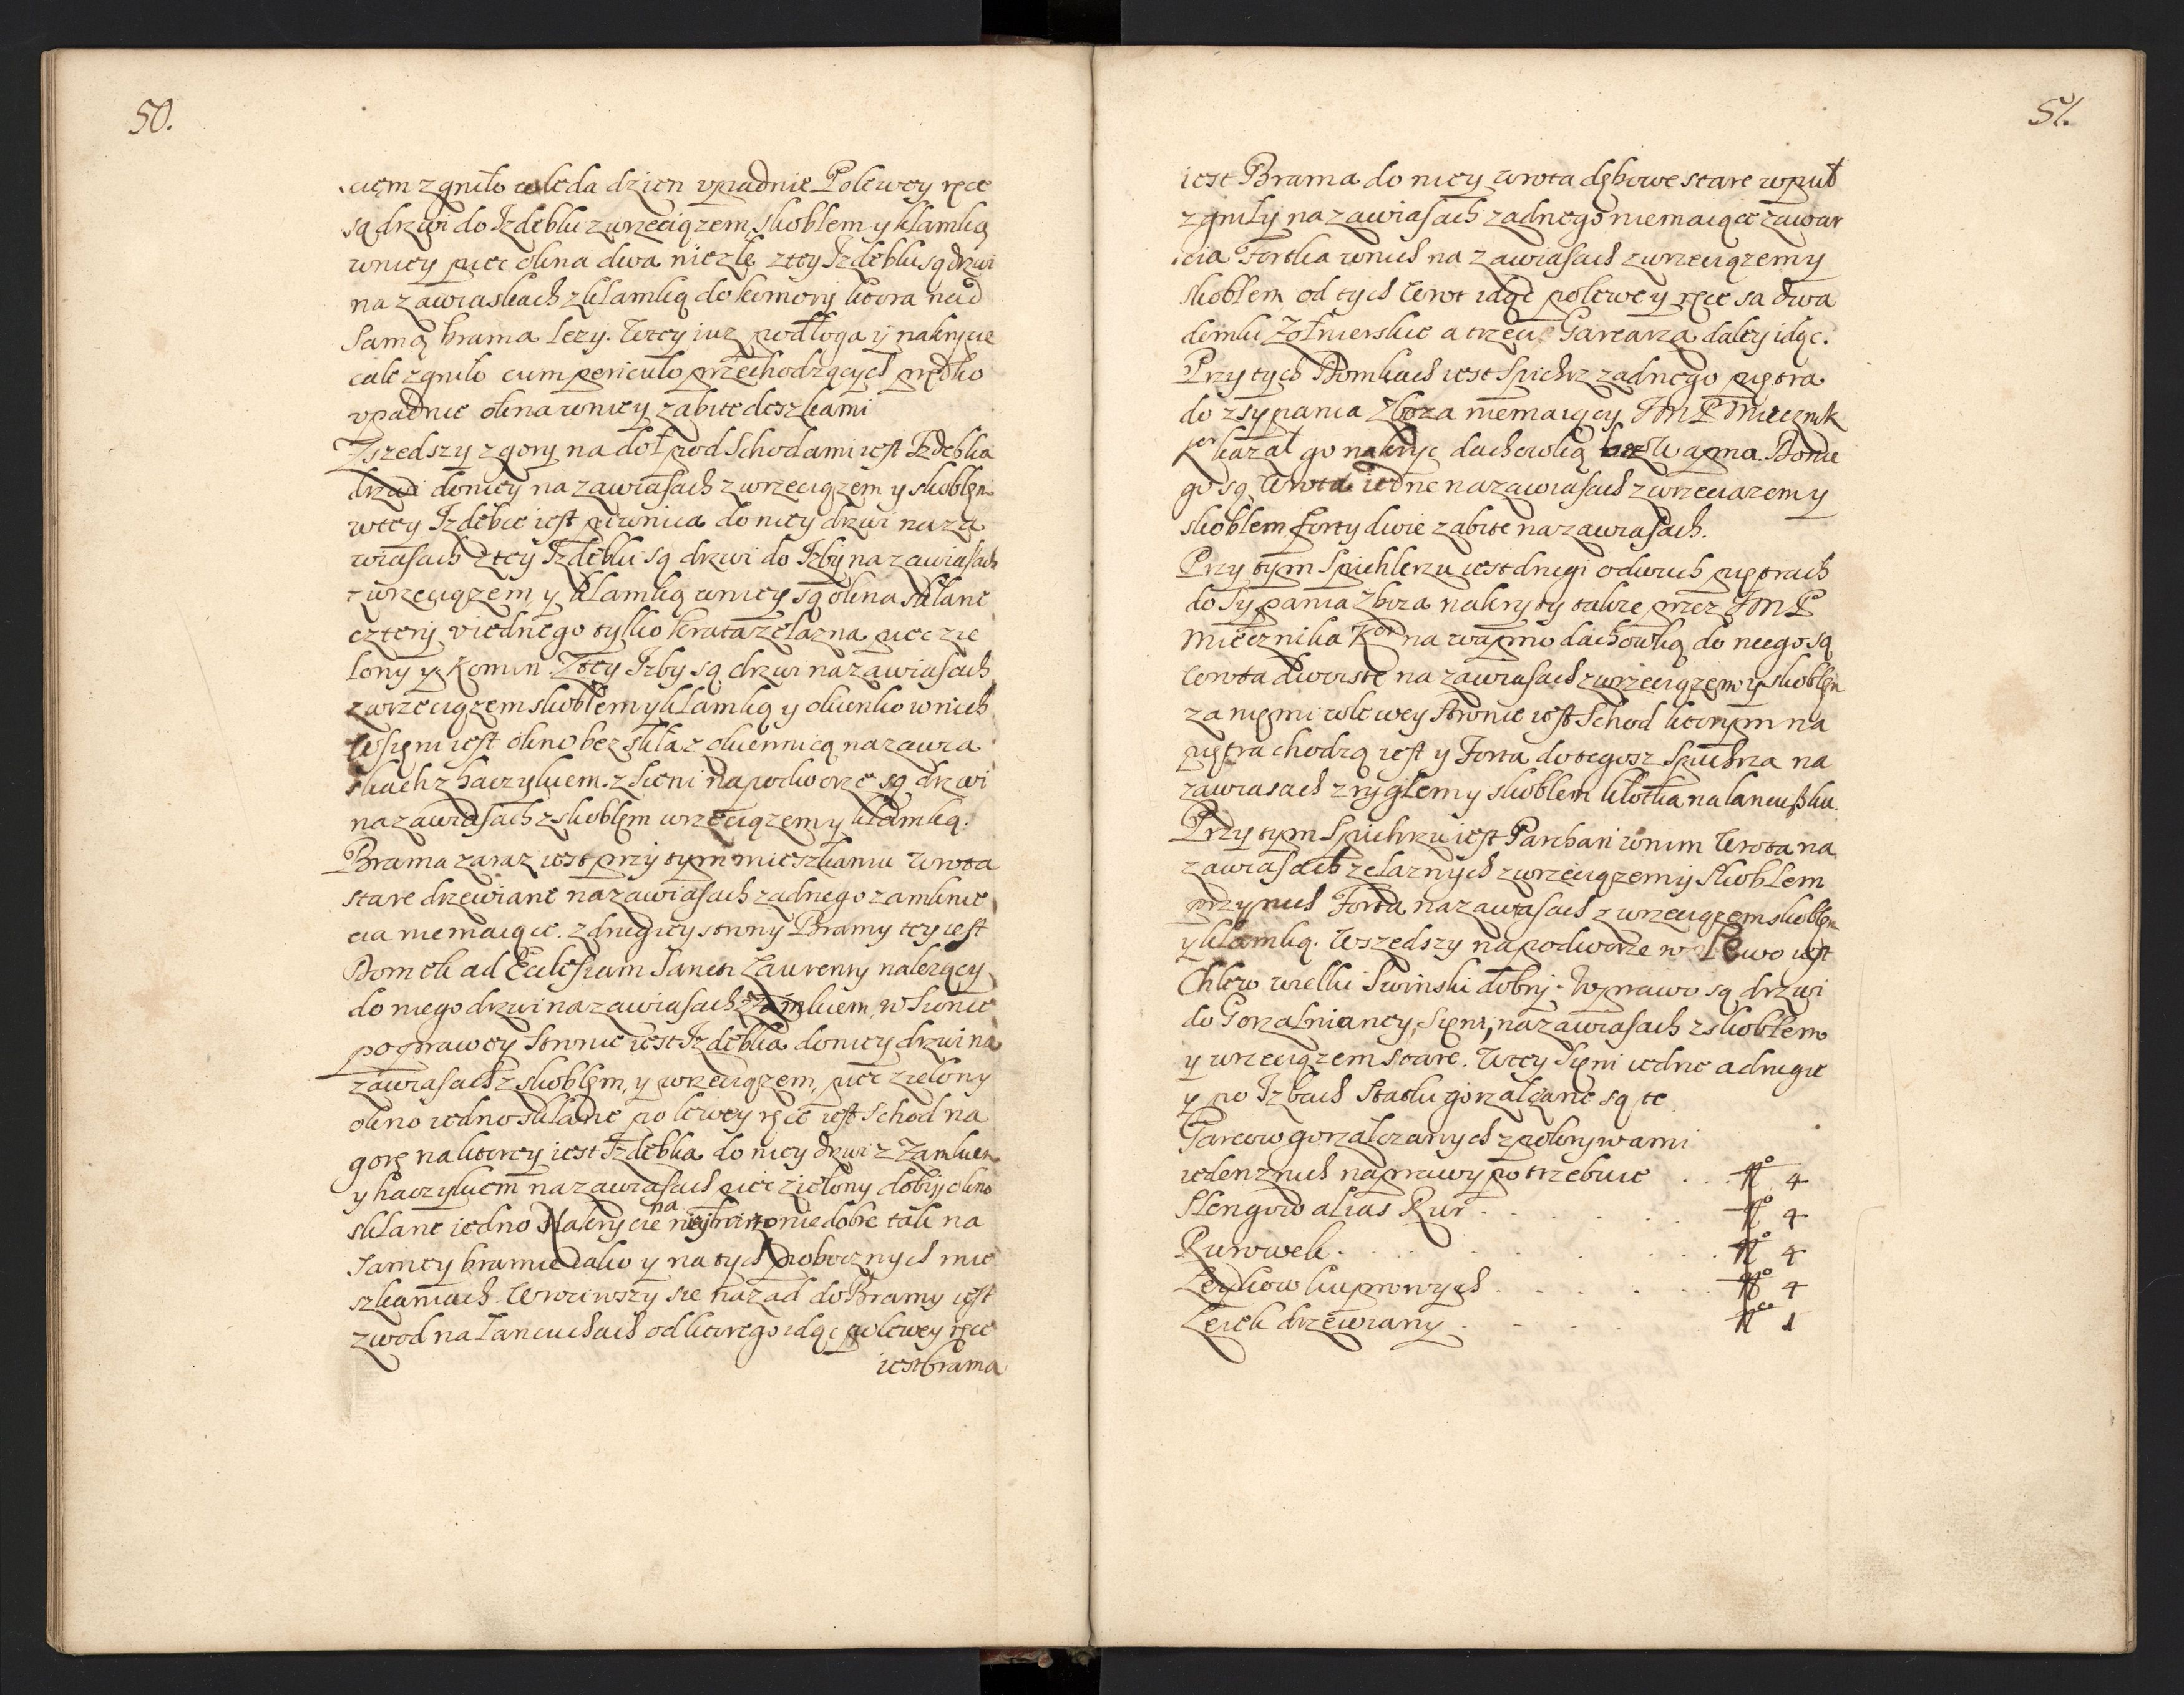 50.
ciem zgniło coleda dzien vpadnie Polewey ręce
są drzwi do Izdebki z wrzeciązem skoblem y klamką
wniey piec okna dwa niezłe ztey Izdebki są drzwi
na zawiaskach z klamką do komory ktora nad
samą brama lezy. Wtey iuz podłoga y nakrycie
cale zgniło cum periculo przechodzących prędko
vpadnie okna wniey zabite deszkami
Zszedszy z gory na doł pod Schodami iest Izdebka
drzwi doniey na zawiasach z wrzeciązem y skoblem
wtey Izdebce iest piwnica do niey drzwi na za
wiasach ztey Izdebki są drzwi do Izby na zawiasach
z wrzeciązem y klamką wniey są okna sklane
cztery viednego tylko krata zelazna piec zie
lony y Komin. Ztey Izby są drzwi na zawiasach
z wrzeciązem skoblem y klamką y okienko w nich
Wsięni iest okno bez skła z okiennicą na zawia
skach z haczykiem. z Sieni na podworze są drzwi
na zawiasach z skoblem wrzeciązem y klamką.
Brama zaraz iest przy tym mieszkaniu Wrota
stare drzewiane na zawiasach zadnego zamknie
cia niemaiące. z drugiey strony Bramy tey iest
Domek ad Ecclesiam Sancti Laurenty nalezący
do niego drzwi na zawiasach z zamkiem, w Sionce
po prawey stronie iest Izdebka doniey drzwi na
zawiasach z skoblem, y wrzeciązem, piec zielony
okno iedno sklane po lewey ręce iest Schod na
gorę na ktorey iest Izdebka do niey drzwi z zamkiem
y haczykiem na zawiasach piec zielony dobry okno
sklane iedno Nakrycie na niedobre tak na
samey bramie iako y na tych pobocznych mie
szkaniach. Wrociwszy się nazad do Bramy iest
zwod na Lancuchach od ktorego idąc po lewey ręce
iest brama
51.
iest Brama do niey wrota dębowe stare wpuł
zgniły na zawiasach zadnego niemaiące zawar
cia Fortka wnich na zawiasach z wrzeciązem y
skoblem od tych Wrot idąc polewey ręce sa dwa
domki Zołnierskie a trzeci Garcarza daley idąc.
Przy tych Domkach iest Spichrz zadnego piętra
do zsypania Zboza niemaiący IMP Miecznik
Kor kazał go nakryc dachowką bez Wapna. Donie
go są Wrota iedne na zawiasach z wrzeciazem y
skoblem forty dwie zabite na zawiasach.
Przy tym Spichlerzu iest drugi o dwuch piętrach
do Sypania Zboza nakryty takze przez IMP
Miecznika Kor na wapno dachowką do niego są
Wrota dwoiste na zawiasach z wrzeciązem y skoblem
za niemi w lewey stronie iest Schod ktorym na
piętra chodzą iest y Forta do tegosz Spichrza na
zawiasach z ryglem y skoblem kłotka na lancuszku.
Przy tym Spichrzu iest Parchan wnim Wrota na
zawiasach zelaznych z wrzeciązem y skoblem
przy nich Forta na zawiasach z wrzeciązem skoblem
y klamką. Wszedszy na podworze w Lewo iest
Chlew wielki Swinski dobry. Wprawo są drzwi
do Gorzalnianey Sieni, na zawiasach z skoblem
y wrzeciązem stare. Wtey Sieni iedne a drugie
y po Izbach Statki gorzalczane są te
Garcow gorzalczanych z pokrywami
ieden z nich naprawy potrzebuie . . . No 4
Slengow alias Rur . . . No 4
Rurowek . . . No 4
Leykow kuprowych . . . No 4
Leiek drzewiany . . . No 1